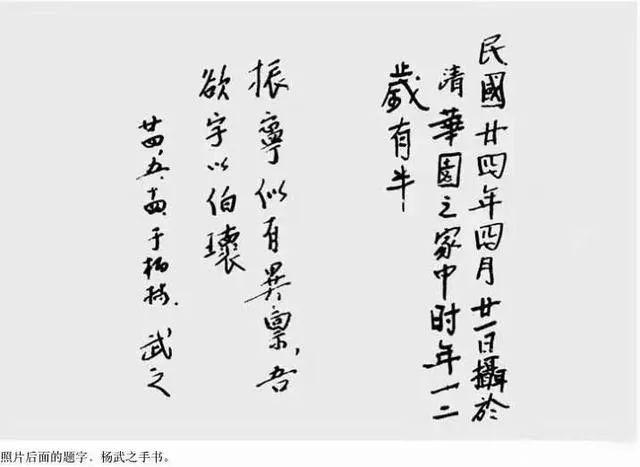 民國廿四年四月廿一日攝於
清華園之家中时年十二
歲有半
振寧似有異稟,吾
欲字以伯瓌
廿四,五,十四于柏林. 武之
照片后面的题字.杨武之手书。